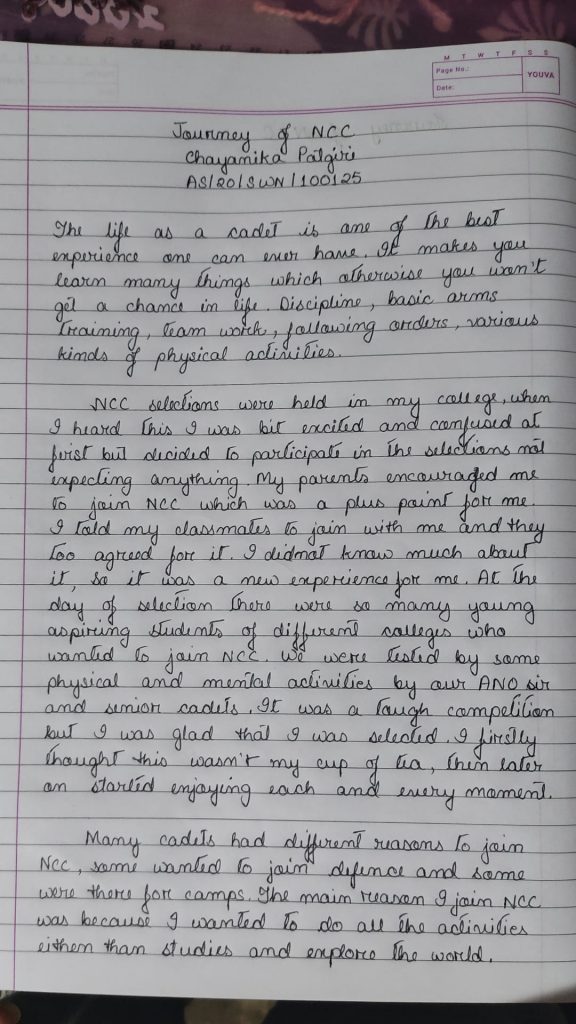 M T W T F S S
Page No.:
Date:
YOUVA
Journey of NCC
Chayanika Patgiri
AS/20/SWN/100125
The life as a cadet is one of the best
experience one can ever have. It makes you
learn many things which otherwise you won't
get a chance in life. Discipline, basic arms
training, team work, following orders, various
kinds of physical activities.
NCC selections were held in my college, when
I heard this I was bit excited and confused at
first but decided to participate in the selections not
expecting anything. My parents encouraged me
to join NCC which was a plus point for me.
I told my classmates to join with me and they
too agreed for it. I didnot know much about
it, so it was a new experience for me. At the
day of selection there were so many young
aspiring students of different colleges who
wanted to join NCC. We were tested by some
physical and mental activities by our ANO sir
and senior cadets. It was a tough competition
but I was glad that I was selected. I firstly
thought this wasn't my cup of tea, then later
on started enjoying each and every moment.
Many cadets had different reasons to join
NCC, some wanted to join defence and some
were there for camps. The main reason I join NCC
was because I wanted to do all the activities
eithen than studies and explore the world.